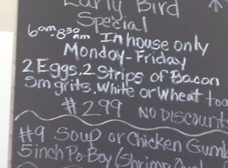 Early Bird
Special
6am-8:30am In house only
Monday-Friday
2 Eggs, 2 Strips of Bacon
Sm grits, White or Wheat toa
$2.99 NO DISCOUNTS
#9 Soup or Chicken Gum
5inch Po-Boy (Shrimp